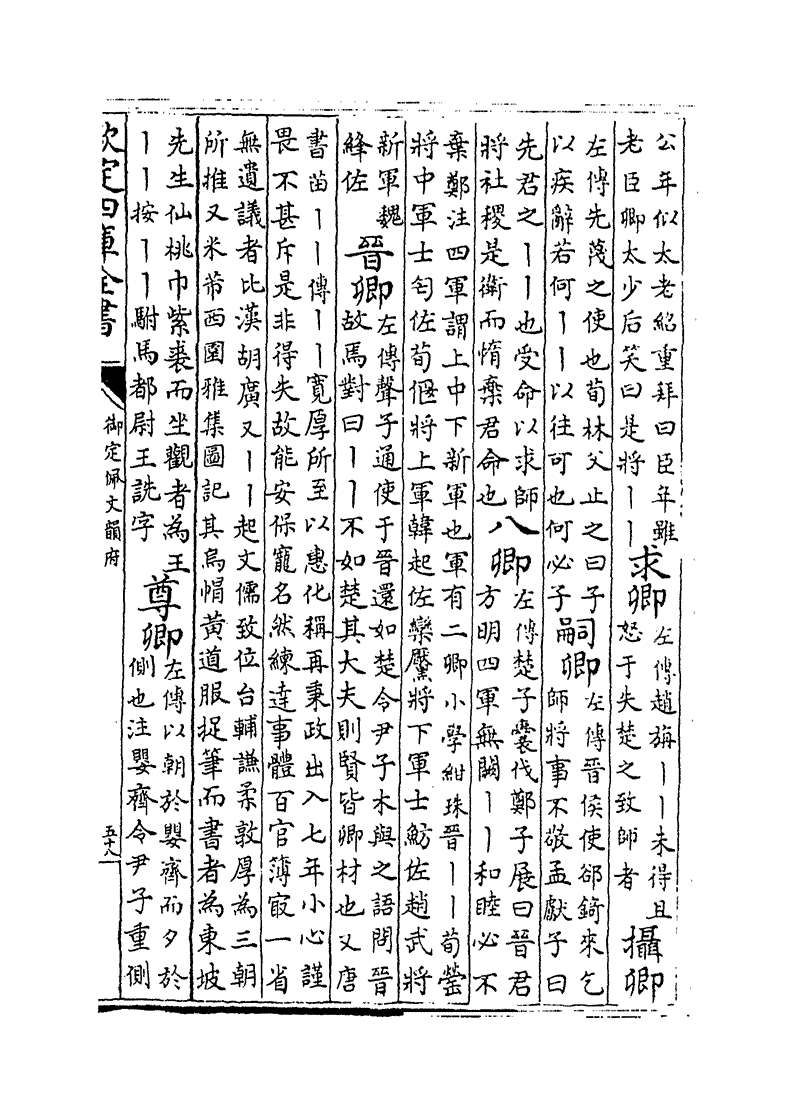 公年似太老紹重拜曰臣年雖
老臣卿太少后笑曰是將丨丨
求卿
左傳趙旃丨丨未得且
怒于失楚之致師者
攝卿
左傳先蔑之使也荀林父止之曰子
以疾辭若何丨丨以往可也何必子
嗣卿
左傳晉侯使郤錡來乞
師將事不敬孟獻子曰
先君之丨丨也受命以求師
將社稷是衛而惰棄君命也
八卿
左傳楚子囊伐鄭子展曰晉君
方明四軍無闕丨丨和睦必不
棄鄭注四軍謂上中下新軍也軍有二卿小學紺珠晉丨丨荀罃
將中軍士匄佐荀偃將上軍韓起佐欒黶將下軍士魴佐趙武將
新軍魏
絳佐
晉卿
左傳聲子通使于晉還如楚令尹子木與之語問晉
故焉對曰丨丨不如楚其大夫則賢皆卿材也又唐
書苗丨丨傳丨丨寬厚所至以惠化稱再秉政出入七年小心謹
畏不甚斥是非得失故能安保寵名然練達事體百官簿最一省
無遺議者比漢胡廣又丨丨起文儒致位台輔謙柔敦厚為三朝
所推又米芾西園雅集圖記其烏帽黃道服捉筆而書者為東坡
先生仙桃巾紫裘而坐觀者為王
丨丨按丨丨駙馬都尉王詵字
尊卿
左傳以朝於嬰齊而夕於
側也注嬰齊令尹子重側
欽定四庫全書
御定佩文韻府
五十八